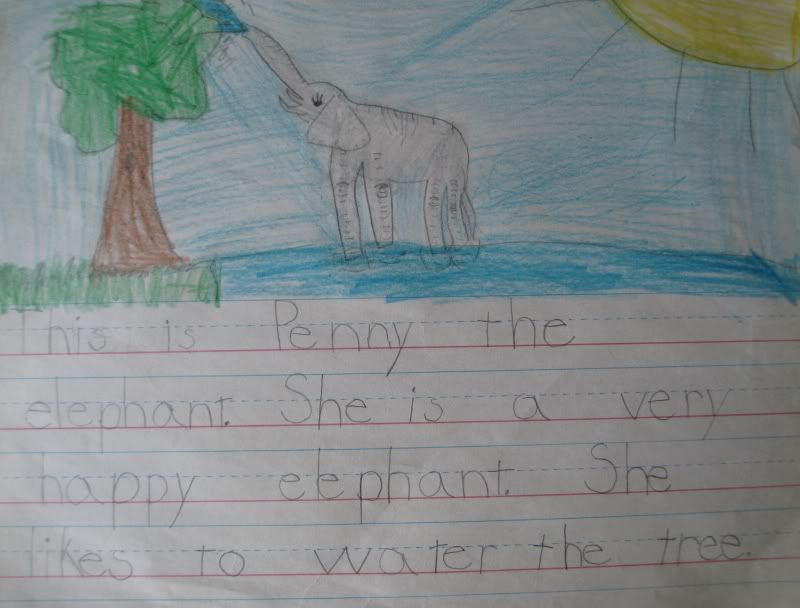 This is Penny the
elephant. She is a very
happy elephant. She
likes to water the tree.